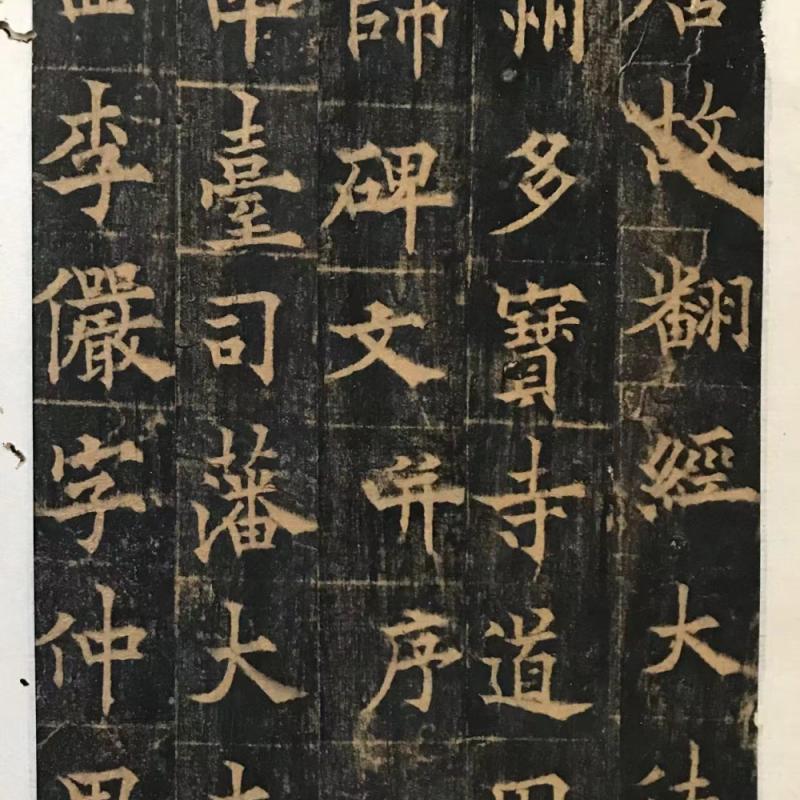 故翻經大
州多寶寺道
師碑文并序
臺司藩大
李儼字仲